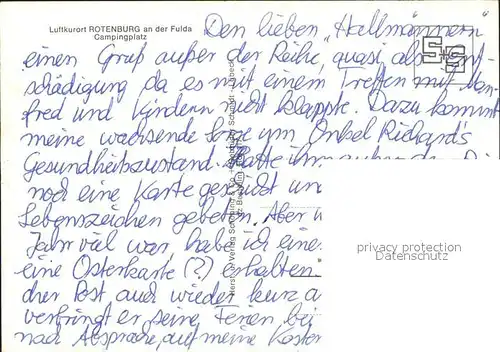 Luftkurort ROTENBURG an der Fulda
Campingplatz
Den lieben „Hallmännern"
einen Gruß außer der Reihe, quasi als Ent-
schädigung da es mit einem Treffen mit Man-
fred und Kindern nicht klappte. Dazu kommt
meine wachsende Sorge um Onkel Richards
Gesundheitszustand. Hatte ihm außer der
noch eine Karte geschickt und
Lebenszeichen gebeten. Aber
Jahr viel war habe ich eine
eine Osterkarte (?) erhalten.
der Post auch wieder kurz
verbringt er seine Ferien bei
nach Absprache, auf meine Kosten
privacy protection
Datenschutz